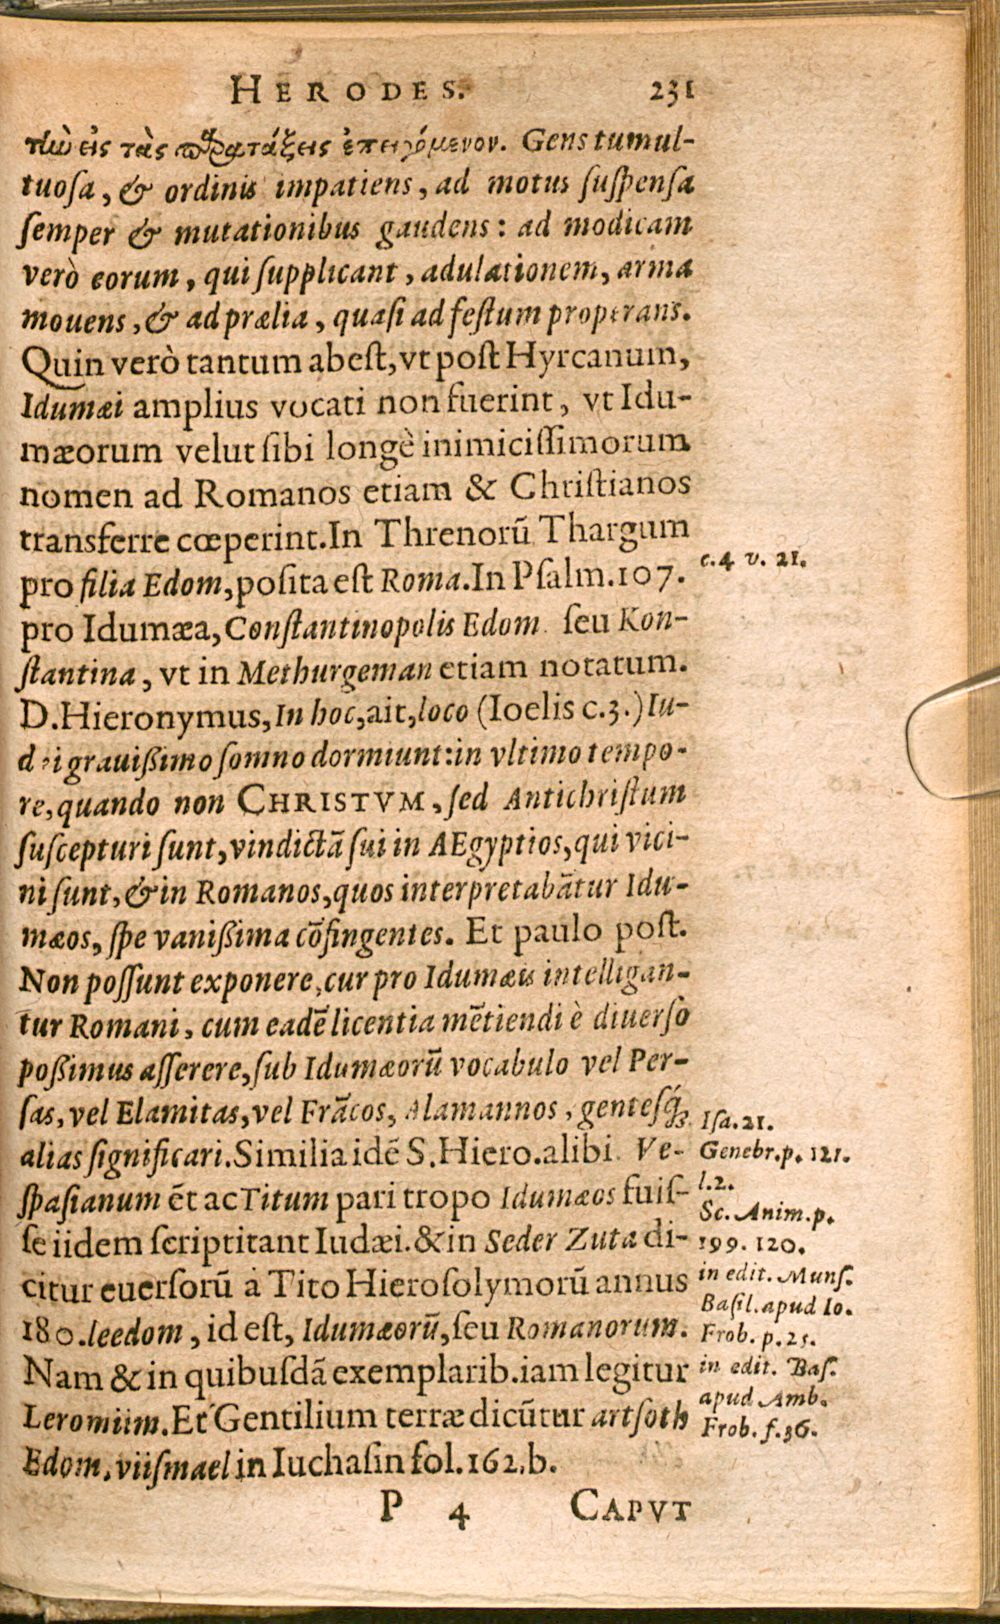 HERODES. 231
τὴν εἰς τὰς παρατάξεις ἐπειγόμενον. Gens tumul-
tuosa, & ordinis impatiens, ad motus suspensa
semper & mutationibus gaudens: ad modicam
verò eorum, qui supplicant, adulationem, arma
mouens, & ad prælia, quasi ad festum properans.
Quin verò tantum abest, vt post Hyrcanum,
Idumæi amplius vocati non fuerint, vt Idu-
mæorum velut sibi longè inimicissimorum
nomen ad Romanos etiam & Christianos
transferre cœperint. In Threnorū Thargum
pro filia Edom, posita est Roma. In Psalm. 107.
c. 4 v. 21.
pro Idumæa, Constantinopolis Edom seu Kon-
stantina, vt in Methurgeman etiam notatum.
D. Hieronymus, In hoc, ait, loco (Ioelis c. 3.) Iu-
dæi grauißimo somno dormiunt: in vltimo tempo-
re, quando non CHRISTVM, sed Antichristum
suscepturi sunt, vindictā sui in AEgyptios, qui vici-
ni sunt, & in Romanos, quos interpretabātur Idu-
mæos, spe vanißima cōfingentes. Et paulo post.
Non possunt exponere, cur pro Idumæis intelligan-
tur Romani, cum eadē licentia mētiendi è diuerso
poßimus asserere, sub Idumæorū vocabulo vel Per-
sas, vel Elamitas, vel Frācos, Alamannos, gentesq́;
alias significari. Similia idē S. Hiero. alibi. Ve-
spasianum ēt ac Titum pari tropo Idumæos fuis-
se iidem scriptitant Iudæi. & in Seder Zuta di-
citur euersorū à Tito Hierosolymorū annus
180. leedom, id est, Idumæorū, seu Romanorum.
Nam & in quibusdā exemplarib. iam legitur
Leromiim. Et Gentilium terræ dicūtur artsoth
Edom, viismael in Iuchasin fol. 162, b.
Isa. 21.
Genebr. p. 121.
l. 2.
Sc. Anim. p.
199. 120.
in edit. Muns.
Basil. apud Io.
Frob. p. 25.
in edit. Bas.
apud Amb.
Frob. f. 36.
P 4 CAPVT